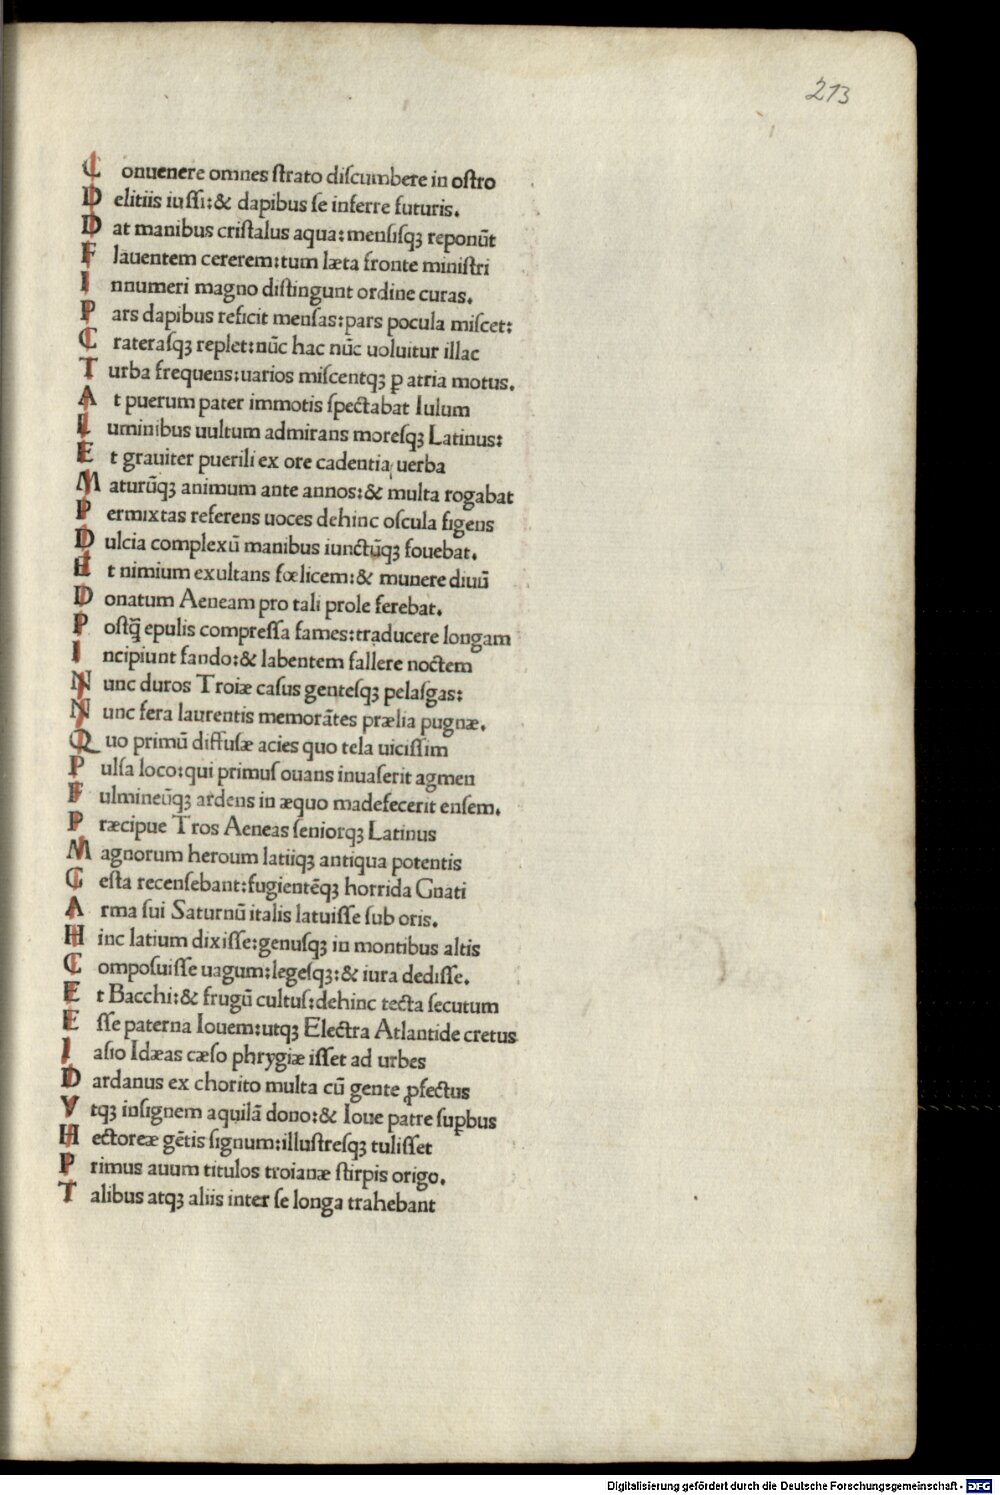 213
Conuenere omnes ſtrato diſcumbere in oſtro
Delitiis iuſſi:& dapibus ſe inferre futuris.
Dat manibus criſtalus aqua:menſiſqꝫ reponūt
Flauentem cererem:tum læta fronte miniſtri
Innumeri magno diſtingunt ordine curas.
Pars dapibus reficit menſas:pars pocula miſcet:
Crateraſqꝫ replet:nūc hac nūc uoluitur illac
Turba frequens:uarios miſcentqꝫ ꝑ atria motus.
At puerum pater immotis ſpectabat Iulum
Luminibus uultum admirans moreſqꝫ Latinus:
Et grauiter puerili ex ore cadentia uerba
Maturūqꝫ animum ante annos:& multa rogabat
Permixtas referens uoces dehinc oſcula figens
Dulcia complexū manibus iunctūqꝫ fouebat.
Et nimium exultans fœlicem:& munere diuū
Donatum Aeneam pro tali prole ferebat.
Poſtq̃ epulis compreſſa fames:traducere longam
Incipiunt fando:& labentem fallere noctem
Nunc duros Troiæ caſus genteſqꝫ pelaſgas:
Nunc fera laurentis memorātes prælia pugnæ.
Quo primū diffuſæ acies quo tela uiciſſim
Pulſa loco:qui primuſ ouans inuaſerit agmen
Fulmineūqꝫ ardens in æquo madefecerit enſem.
Præcipue Tros Aeneas ſeniorqꝫ Latinus
Magnorum heroum latiiqꝫ antiqua potentis
Geſta recenſebant:fugientēqꝫ horrida Gnati
Arma ſui Saturnū italis latuiſſe ſub oris.
Hinc latium dixiſſe:genuſqꝫ in montibus altis
Compoſuiſſe uagum:legeſqꝫ:& iura dediſſe.
Et Bacchi:& frugū cultuſ:dehinc tecta ſecutum
Eſſe paterna Iouem:utqꝫ Electra Atlantide cretus
Iaſio Idæas cæſo phrygiæ iſſet ad urbes
Dardanus ex chorito multa cū gente ꝓfectus
Vtqꝫ inſignem aquilā dono:& Ioue patre ſuꝑbus
Hectoreæ gētis ſignum:illuſtreſqꝫ tuliſſet
Primus auum titulos troianæ ſtirpis origo.
Talibus atqꝫ aliis inter ſe longa trahebant
Digitalisierung gefördert durch die Deutsche Forschungsgemeinschaft - DFG